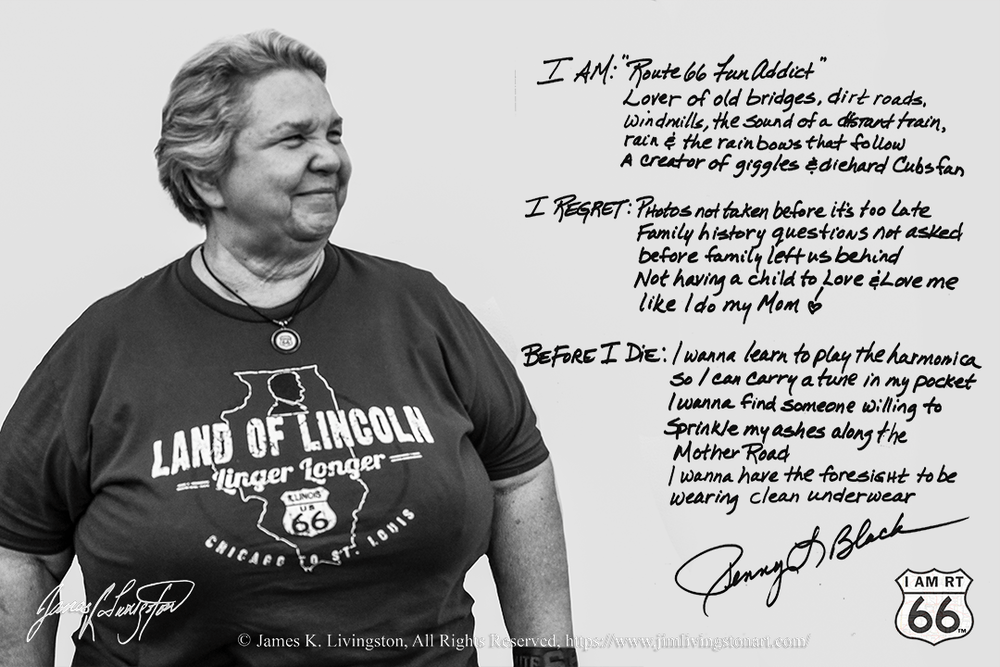 I AM: "Route 66 Fun Addict"
Lover of old bridges, dirt roads,
windmills, the sound of a distant train,
rain & the rainbows that follow
A creator of giggles & diehard Cubs fan
I REGRET: Photos not taken before it's too late
Family history questions not asked
before family left us behind
Not having a child to Love & Love me
like I do my Mom
BEFORE I DIE: I wanna learn to play the harmonica
so I can carry a tune in my pocket
I wanna find someone willing to
Sprinkle my ashes along the
Mother Road
I wanna have the foresight to be
wearing clean underwear
Penny L Black
LAND OF LINCOLN
Linger Longer
ILLINOIS
US
66
CHICAGO TO ST. LOUIS
James K Livingston
I AM RT
66
TM
© James K. Livingston, All Rights Reserved, https://www.jimlivingstonart.com/